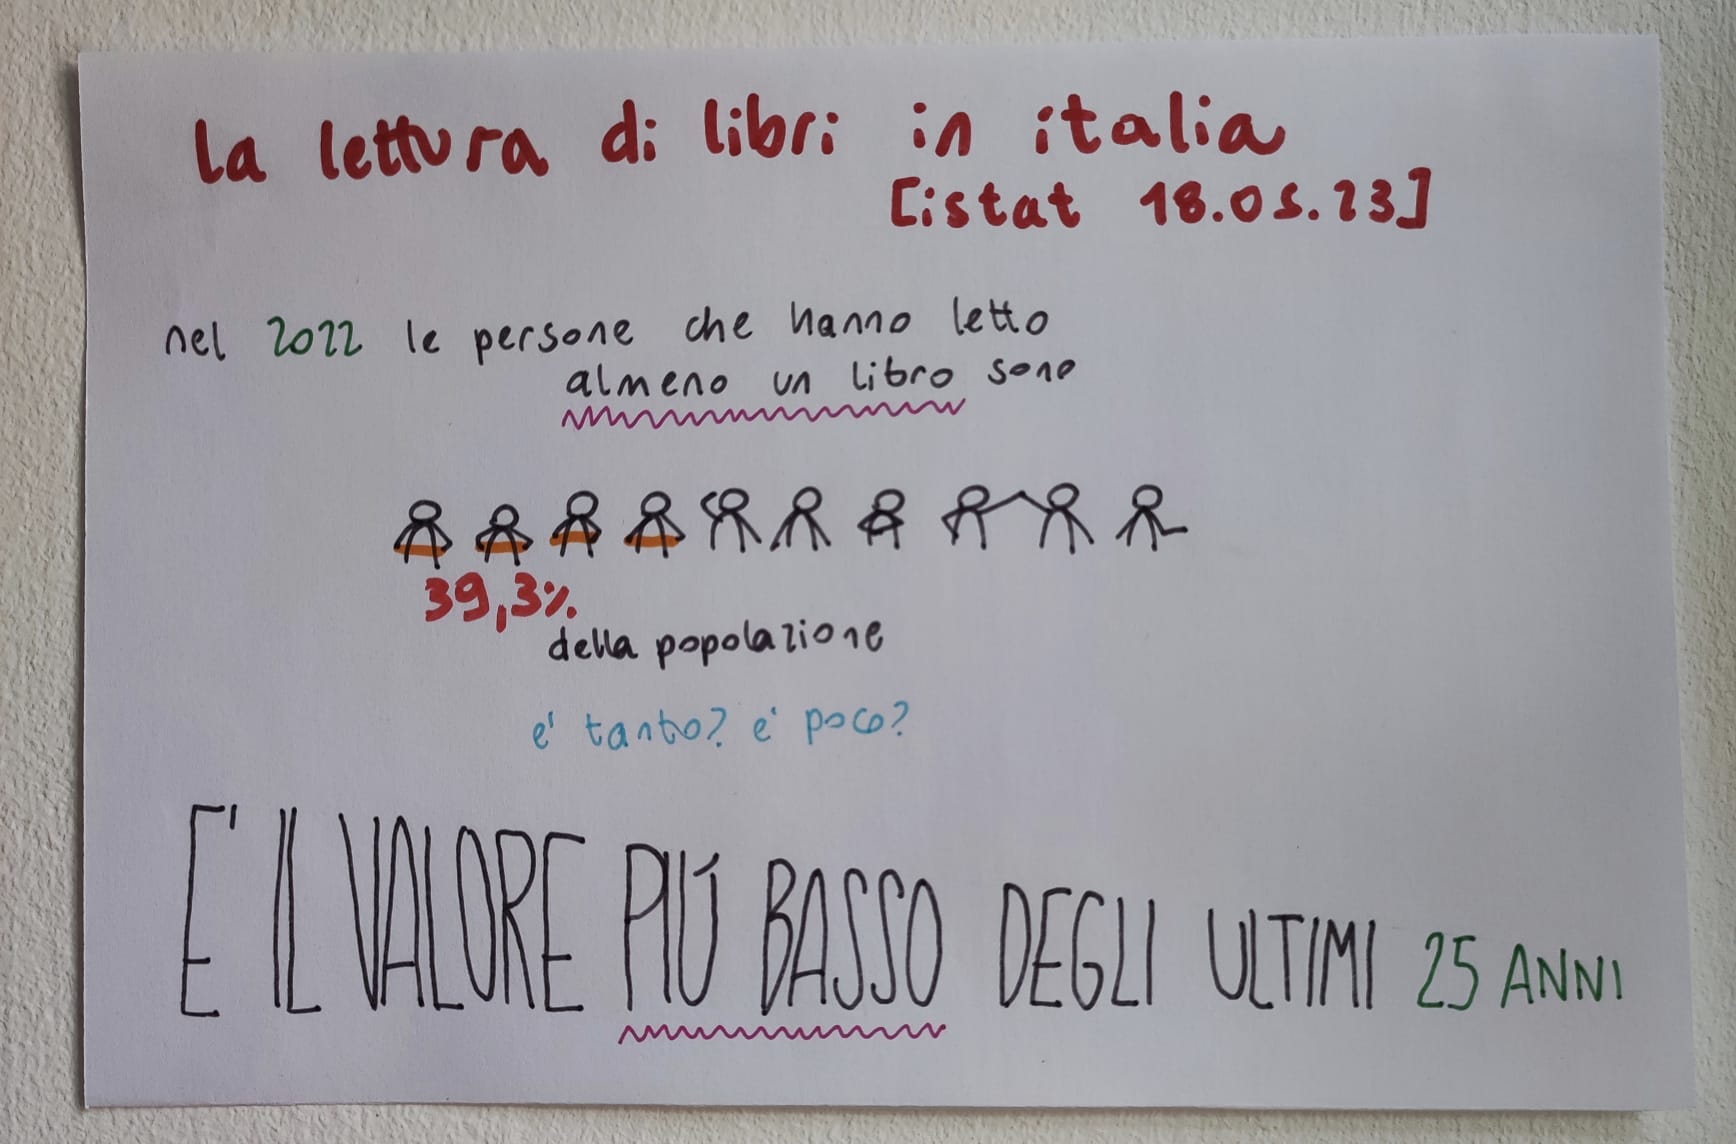 la lettura di libri in italia
[istat 18.05.23]
nel 2022 le persone che hanno letto
almeno un libro sono
39,3%
della popolazione
e' tanto? e' poco?
E' IL VALORE PIÚ BASSO DEGLI ULTIMI 25 ANNI